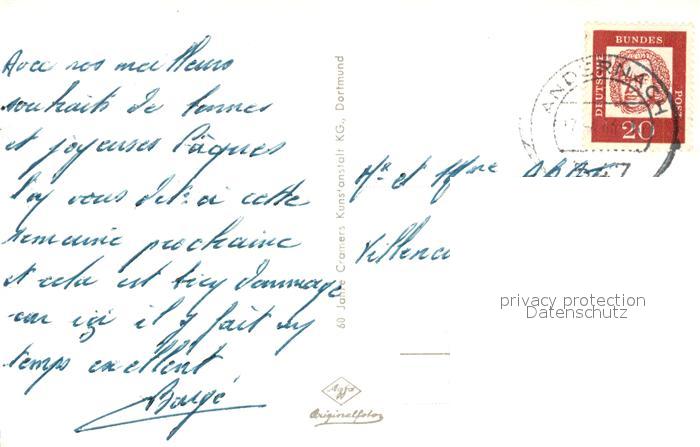 Avec nos meilleurs
souhaits de bonnes
et joyeuses Pâques
vous à cette
semaine prochaine
et cela est bien dommage
car ici il y fait un
temps excellent
60 Jahre Cramers Kunstanstalt KG., Dortmund
Mr et Mme
DEUTSCHE BUNDESPOST
20
ANDERNACH
privacy protection
Datenschutz
Agfa
Originalfoto